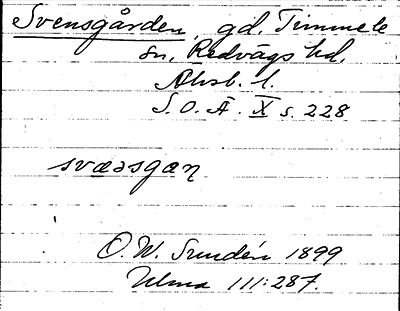 Svensgården, gd. Timmele
sn, Redvägs hd.
Älvsb. l.
S.O.Ä. X s. 228
svæsgan
O.W. Sundén 1899
Ulma 111:287.